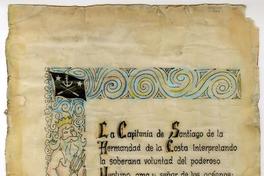 La Capitanía de Santiago de la
Hermandad de la Costa interpretando
la soberana voluntad del poderoso
Neptuno, amo y señor de los océanos;